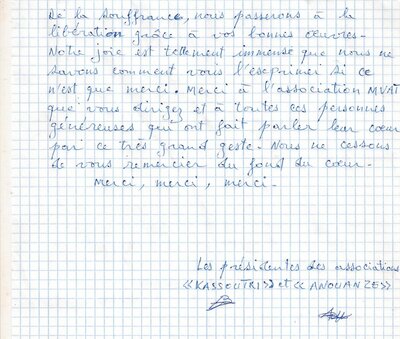 De la souffrance, nous passerons à la
libération grâce à vos bonnes œuvres.
Notre joie est tellement immense que nous ne
savons comment vous l'exprimer si ce
n'est que merci. Merci à l'association MVAT
que vous dirigez et à toutes ces personnes
généreuses qui ont fait parler leur cœur
par ce très grand geste. Nous ne cessons
de vous remercier du fond du cœur.
Merci, merci, merci.
Les présidentes des associations
<<KASSOUTRI>> et <<ANOUANZE>>